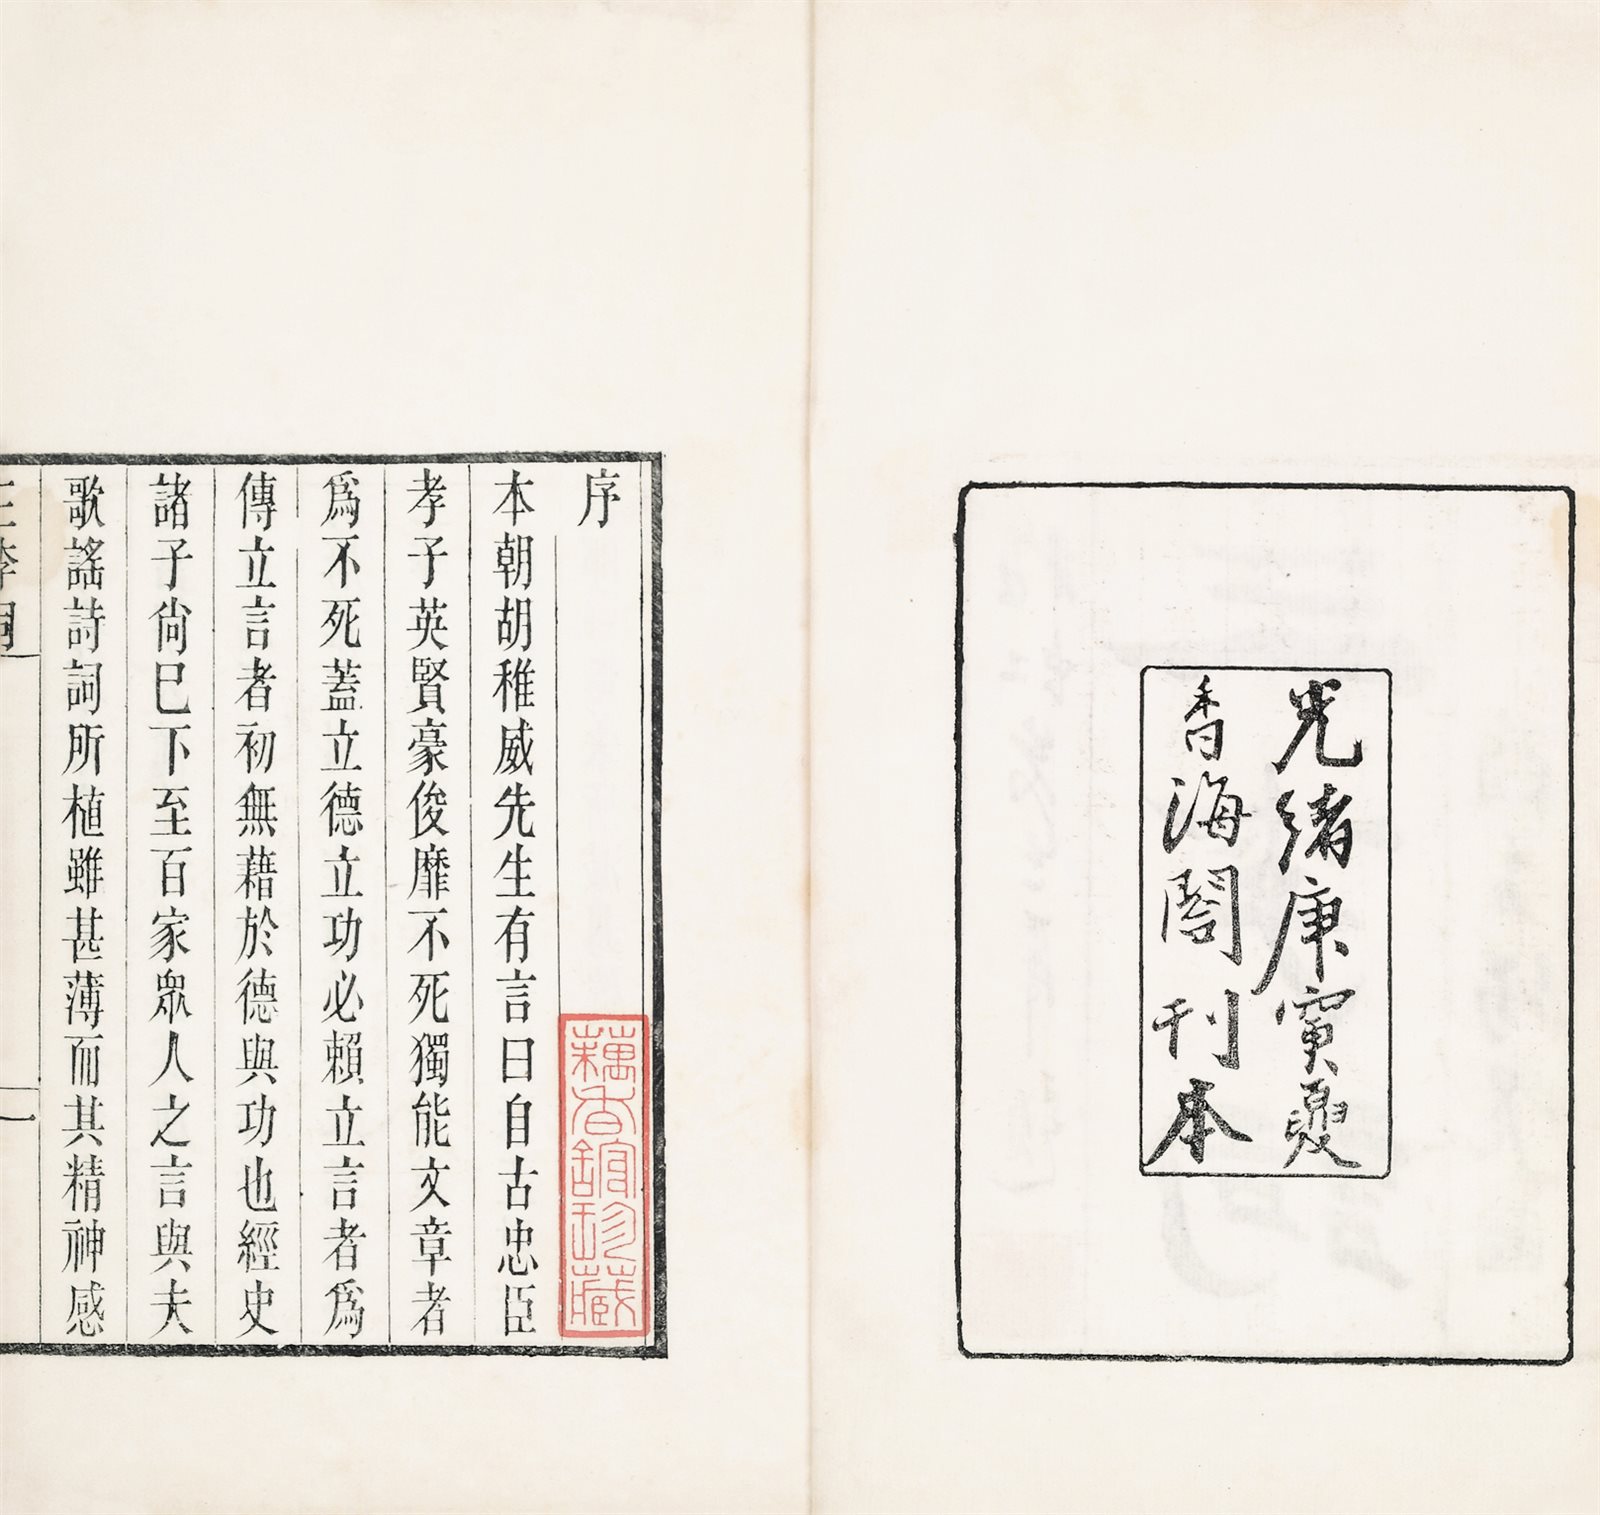 光緒庚寅夏
香海閣刊本
序
藕香舘珍藏
本朝胡稚威先生有言曰自古忠臣
孝子英賢豪俊靡不死獨能文章者
爲不死蓋立德立功必賴立言者爲
傳立言者初無藉於德與功也經史
諸子尙巳下至百家眾人之言與夫
歌謠詩詞所植雖甚薄而其精神感
三李詞
一